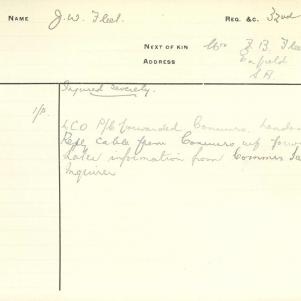 NAME J.W. Fleet. REG. &C. 32nd
NEXT OF KIN Z. B. Fleet
ADDRESS Enfield
S.A.
Injured Severely.
LCO P/C forwarded Comauro. London
Reply cable from Comauro
Later information from Commis
Inquirer